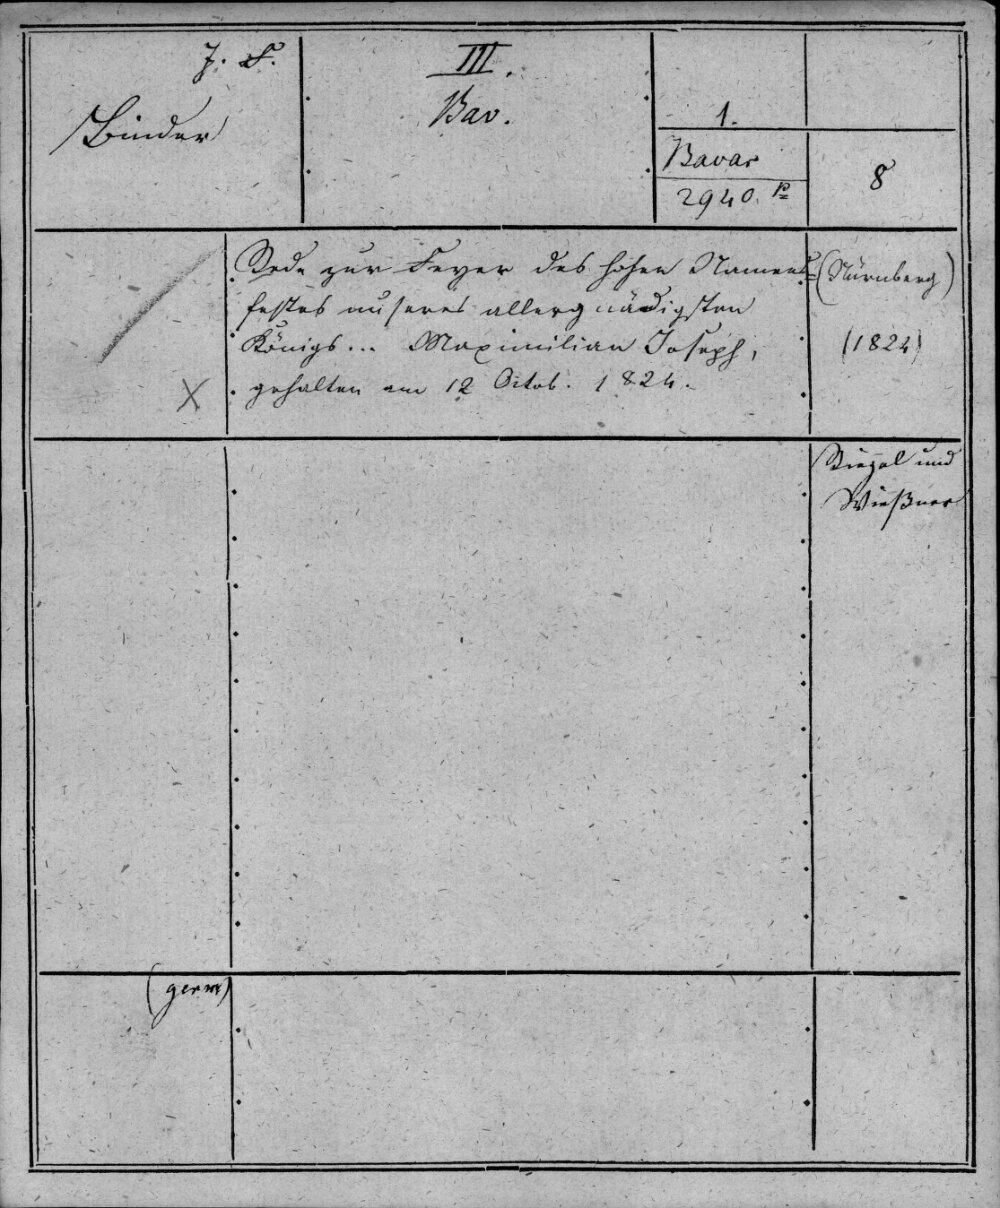 J. F.
Binder
III.
Bav.
1.
Bavar
2940. p
8
Rede zur Feyer des hohen Namens-
festes unseres allergnädigsten
Königs... Maximilian Joseph,
gehalten am 12 Octob. 1824.
(Nürnberg)
(1824)
X
Riegel und
Wießner
(germ)